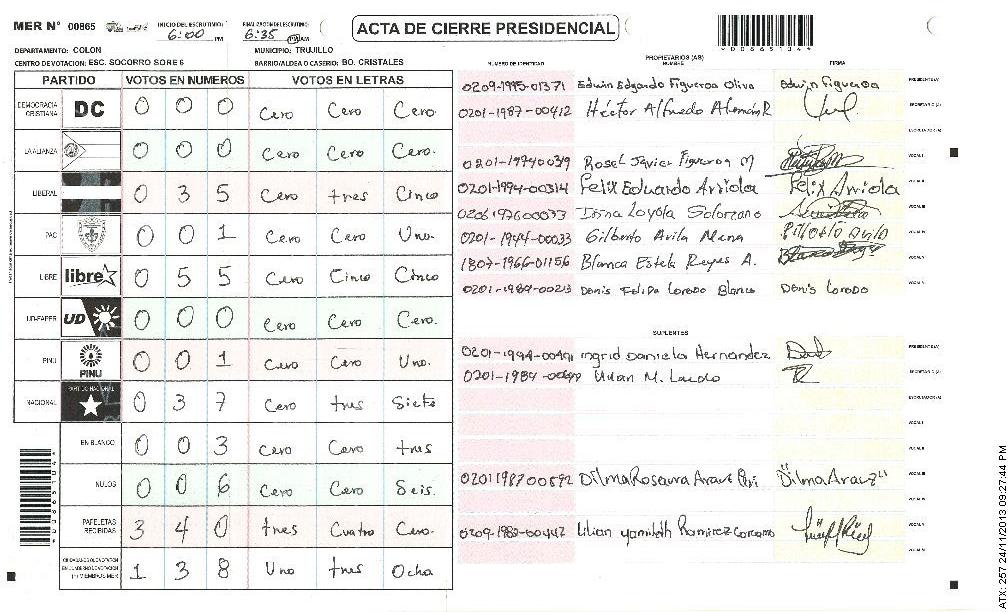 MER N° 00865 INICIO DEL ESCRUTINIO: 6:00 PM FINALIZACION ESCRUTINIO: 6:35 PM AM
ACTA DE CIERRE PRESIDENCIAL
DEPARTAMENTO: COLON MUNICIPIO: TRUJILLO
CENTRO DE VOTACION: ESC. SOCORRO SORE 6 BARRIO/ALDEA O CASERIO: BO. CRISTALES
PARTIDO VOTOS EN NUMEROS VOTOS EN LETRAS
DEMOCRACIA CRISTIANA DC 0 0 0 Cero Cero Cero.
LA ALIANZA 0 0 0 Cero Cero Cero.
LIBERAL 0 3 5 Cero tres Cinco
PAC 0 0 1 Cero Cero Uno.
LIBRE libre 0 5 5 Cero Cinco Cinco
UD-FAPER UD 0 0 0 Cero Cero Cero.
PINU PINU 0 0 1 Cero Cero Uno.
NACIONAL PARTIDO NACIONAL 0 3 7 Cero tres Siete
EN BLANCO 0 0 3 Cero Cero tres
NULOS 0 0 6 Cero Cero Seis.
PAPELETAS RECIBIDAS 3 4 0 tres Cuatro Cero.
1 3 8 Uno tres Ocho
PROPIETARIOS (AS)
NUMERO DE IDENTIDAD NOMBRE FIRMA
0209-1995-01371 Edwin Edgardo Figueroa Oliva Edwin Figueroa PRESIDENTE(A)
0201-1987-00412 Héctor Alfredo Alemán R SECRETARIO (A)
ESCRUTADOR(A)
0801-1994-00319 Rosel Javier Figueroa M VOCAL I
0201-1994-00314 Felix Eduardo Arriola Felix Arriola
0206197600033 Irina Loyola Solorzano
0201-1944-00033 Gilberto Avila Mena
1807-1966-01156 Blanca Estela Reyes A.
0201-1984-00213 Denis Felipa Loredo Blanco Denis Loredo
SUPLENTES
0201-1994-00491 Ingrid Daniela Hernandez PRESIDENTE(A)
SECRETARIO (A)
ESCRUTADOR(A)
0201198700892 Dilma Rosaura Arauz Dilma Arauz
0209-1982-00442 Lilian Yamileth Ramirez
00865104
ATX: 257 24/11/2013 09:27:44 PM